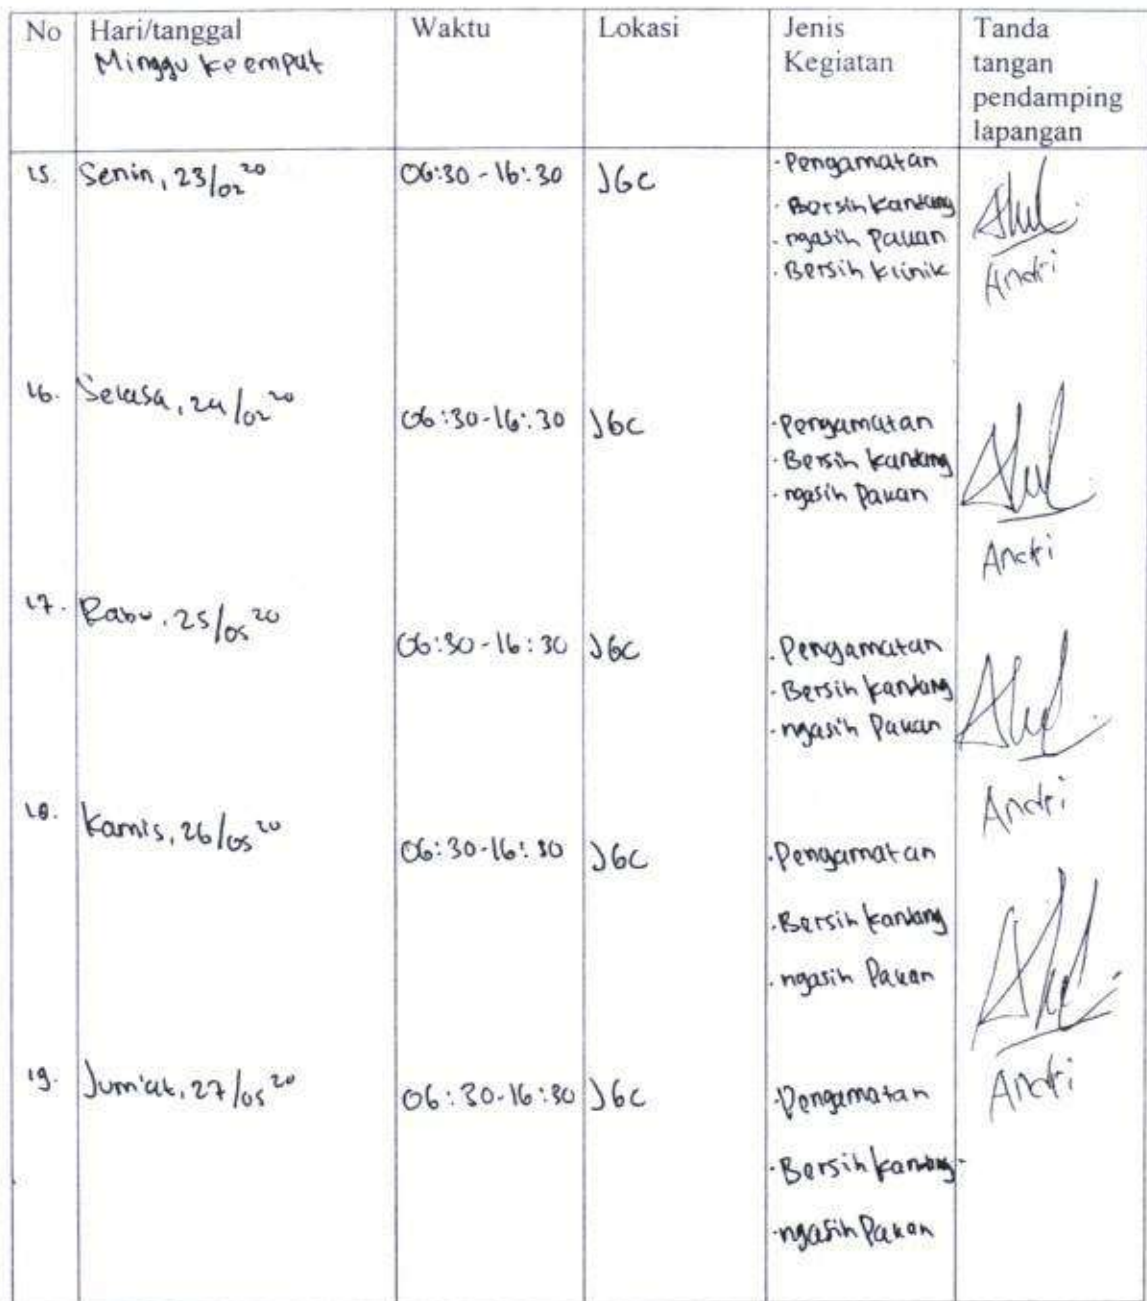 No Hari/tanggal Waktu Lokasi Jenis Kegiatan Tanda tangan pendamping lapangan
Minggu keempat
15. Senin, 23/02 20 06:30 - 16:30 JGC
· Pengamatan
· Bersih kandang
· ngasih Pakan
· Bersih klinik
Andri
16. Selasa, 24/02 20 06:30-16:30 JGC
· Pengamatan
· Bersih kandang
· ngasih Pakan
Andri
17. Rabu, 25/05 20 06:30-16:30 JGC
· Pengamatan
· Bersih kandang
· ngasih Pakan
Andri
18. Kamis, 26/05 20 06:30-16:30 JGC
· Pengamatan
· Bersih kandang
· ngasih Pakan
Andri
19. Jum'at, 27/05 20 06:30-16:30 JGC
· Pengamatan
· Bersih kandang
· ngasih Pakan